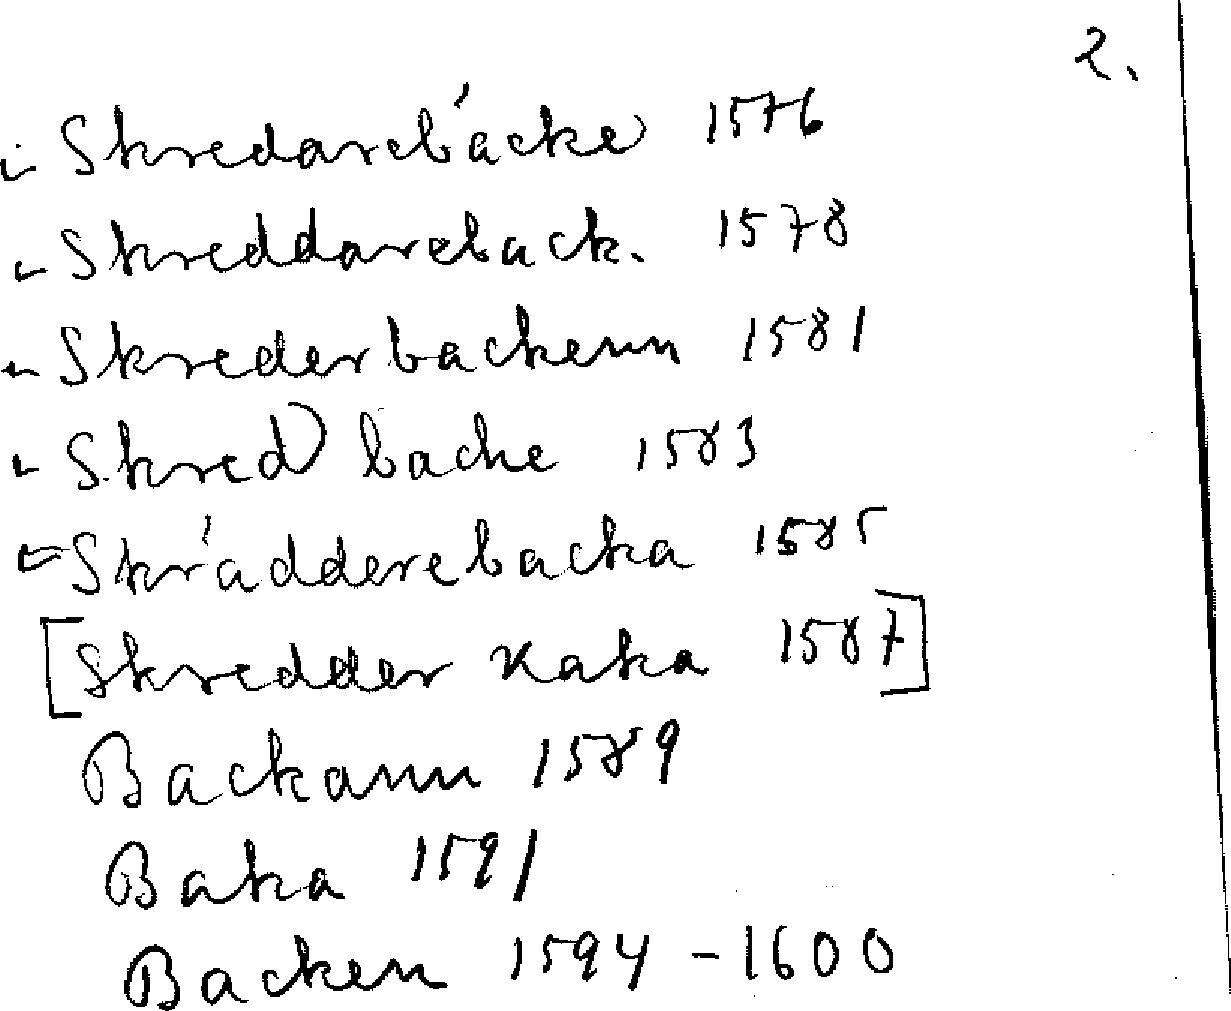 2.
Skredarebäcke 1576
Skreddareback. 1578
Skrederbackenn 1581
Skred backe 1583
Skrädderebacka 1585
[Skredder Kaka 1587]
Backann 1589
Baka 1591
Backen 1594 - 1600